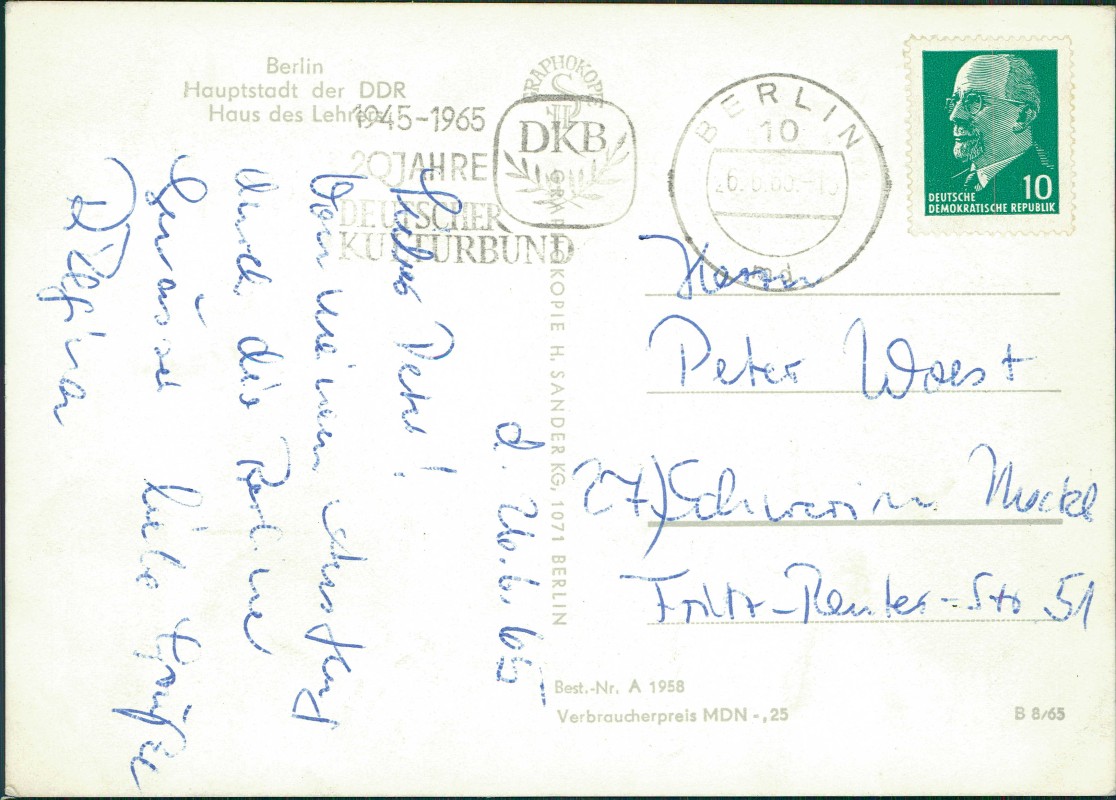 Berlin
Hauptstadt der DDR
Haus des Lehrers
1945-1965
20 JAHRE
DEUTSCHER
KULTURBUND
DKB
GRAPHOKOPIE
GRAPHOKOPIE H. SANDER KG, 1071 BERLIN
BERLIN
10
DEUTSCHE
DEMOKRATISCHE REPUBLIK
10
d. 26.6.65
Lieber Peter!
Von meinem Ausflug
durch die Berliner
liebe Grüße
Regina
Herrn
Peter Woest
27) Schwerin Meckl
Fritz-Reuter-Str 51
Best.-Nr. A 1958
Verbraucherpreis MDN -,25
B 8/65